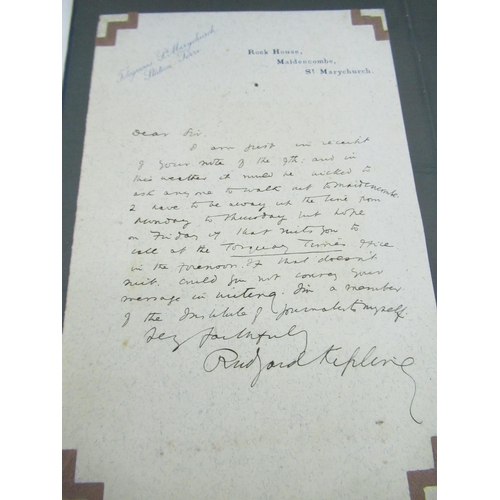 Telegrams St Marychurch,
Rock House,
Maidencombe,
St Marychurch.
Dear Sir.
I am just in receipt
of your note of the 9th: and in
this weather it would be wicked to
ask anyone to walk out to maidencombe
I have to be away up the line from
Monday to Thursday but hope
on Friday if that suits you to
call at the Torquay Times office
in the forenoon. If that doesn't
suit could you not convey your
message in writing. I'm a member
of the Institute of Journalists myself.
Very faithfully
Rudyard Kipling